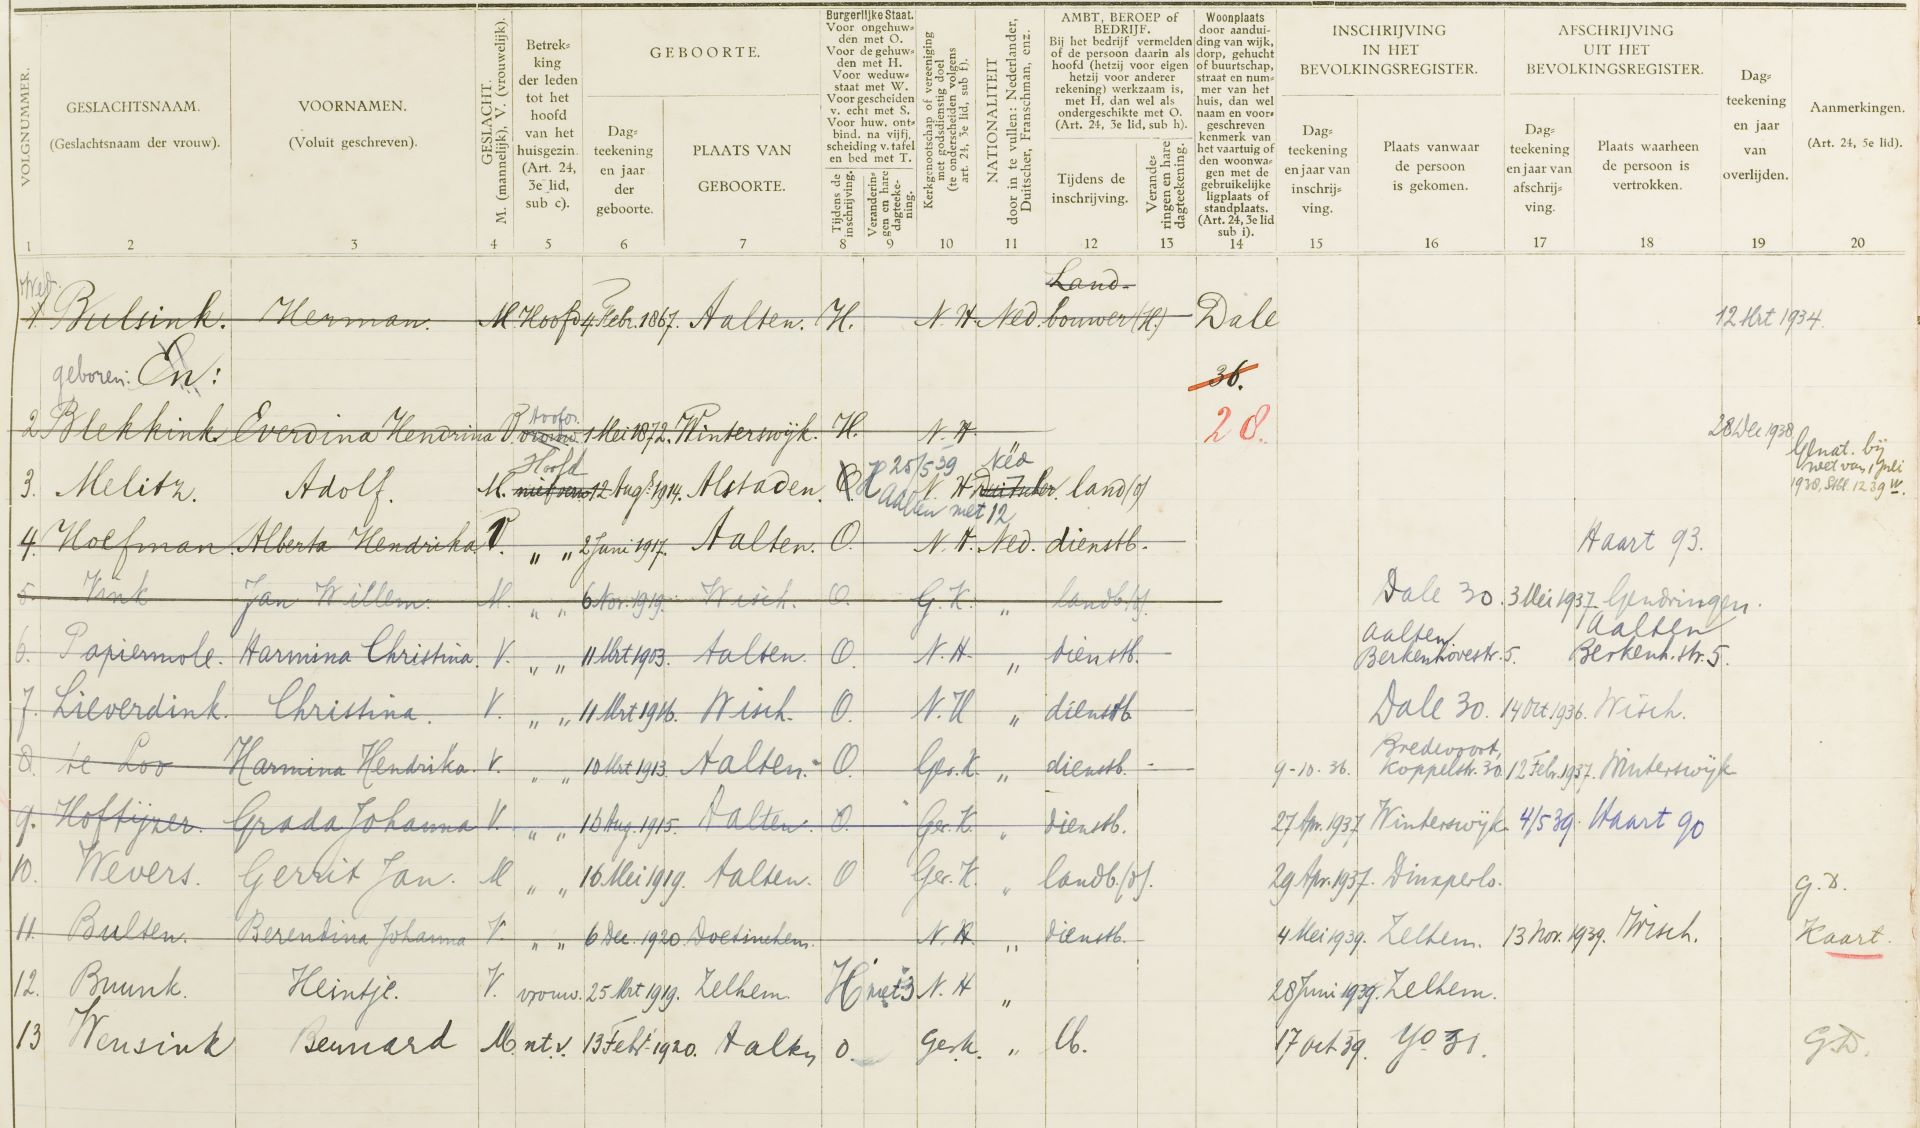 VOLGNUMMER.
1
GESLACHTSNAAM.
(Geslachtsnaam der vrouw).
2
VOORNAMEN.
(Voluit geschreven).
3
GESLACHT.
M. (mannelijk), V. (vrouwelijk).
4
Betrek-
king
der leden
tot het
hoofd
van het
huisgezin.
(Art. 24,
3e lid,
sub c).
5
GEBOORTE.
Dag-
teekening
en jaar
der
geboorte.
6
PLAATS VAN
GEBOORTE.
7
Burgerlijke Staat.
Voor ongehuw-
den met O.
Voor de gehuw-
den met H.
Voor weduw-
staat met W.
Voor gescheiden
v. echt met S.
Voor huw. ont-
bind. na vijfj.
scheiding v. tafel
en bed met T.
Tijdens de
inschrijving.
8
Veranderin-
gen en hare
dagteeke-
ning.
9
Kerkgenootschap of vereeniging
met godsdienstig doel
(te onderscheiden volgens
art. 24, 3e lid, sub f).
10
NATIONALITEIT
door in te vullen: Nederlander,
Duitscher, Franschman, enz.
11
AMBT, BEROEP of
BEDRIJF.
Bij het bedrijf vermelden
of de persoon daarin als
hoofd (hetzij voor eigen
hetzij voor anderer
rekening) werkzaam is,
met H, dan wel als
ondergeschikte met O.
(Art. 24, 3e lid, sub h).
Tijdens de
inschrijving.
12
Verande-
ringen en hare
dagteekening.
13
Woonplaats
door aandui-
ding van wijk,
dorp, gehucht
of buurtschap,
straat en num-
mer van het
huis, dan wel
naam en voor-
geschreven
kenmerk van
het vaartuig of
den woonwa-
gen met de
gebruikelijke
ligplaats of
standplaats.
(Art. 24, 3e lid
sub i).
14
INSCHRIJVING
IN HET
BEVOLKINGSREGISTER.
Dag-
teekening
en jaar van
inschrij-
ving.
15
Plaats vanwaar
de persoon
is gekomen.
16
AFSCHRIJVING
UIT HET
BEVOLKINGSREGISTER.
Dag-
teekening
en jaar van
afschrij-
ving.
17
Plaats waarheen
de persoon is
vertrokken.
18
Dag-
teekening
en jaar
van
overlijden.
19
Aanmerkingen.
(Art. 24, 5e lid).
20
Wed.
Land-
1. Bulsink. Herman. M. Hoofd 4 Febr. 1867. Aalten. H. N. H. Ned. bouwer (H.) Dale 12 Mrt 1934.
geboren: En: 36.
Hoofd.
2 Blekkink Everdina Hendrina V. vrouw. 1 Mei 1872. Winterswijk. H. N. H. 28. 28 Dec 1938
Hoofd 25/5 39 Ned Genat. bij
3. Melitz. Adolf. M. 12 Aug. 1914. Alstaden. O H N. H Duitscher. land (o) wet van 1 Juli
Aalten met 12 1938, Stbl. 1239
4. Hoefman. Alberta Hendrika V. " " 2 Juni 1917. Aalten. O. N. H. Ned. dienstb. Haart 93.
5. Vink Jan Willem. M. " " 6 Nov. 1919. Wisch. O. G. K. " landb. (o). Dale 30. 3 Mei 1937. Gendringen.
Aalten Aalten
6. Papiermole. Harmina Christina. V. " " 11 Mrt 1903. Aalten. O. N. H. " dienstb. Berkenhovestr. 5. Berkenh. str. 5.
7. Lieverdink. Christina. V. " " 11 Mrt 1916. Wisch. O. N. H " dienstb Dale 30. 14 Oct 1936. Wisch.
Bredevoort,
8. te Loo Harmina Hendrika. V. " " 10 Mrt 1913. Aalten. O. Ger. K. " dienstb. - 9-10-36. Koppelstr. 30. 12 Febr. 1937. Winterswijk
9. Hoftijzer. Grada Johanna V. " " 16 Aug. 1915. Aalten. O. Ger. K. " dienstb. 27 Apr. 1937 Winterswijk. 4/5 39. Haart 90
10. Wevers. Gerrit Jan. M " " 16 Mei 1919. Aalten. O Ger. K. " landb. (o). 29 Apr. 1937. Dinxperlo. G.D.
11. Bulten. Berendina Johanna V. " " 6 Dec. 1920. Doetinchem. N. H. " dienstb. 4 Mei 1939. Zelhem. 13 Nov. 1939. Wisch. Kaart.
12. Buunk. Heintje. V. vrouw. 25 Mrt 1919. Zelhem. H met 3 N. H " 28 Juni 1939. Zelhem.
13 Wensink Bernard M. nt. v. 13 Febr. 1920. Aalten o. Ger. k. " lb. 17 oct 39. 31. G.D.